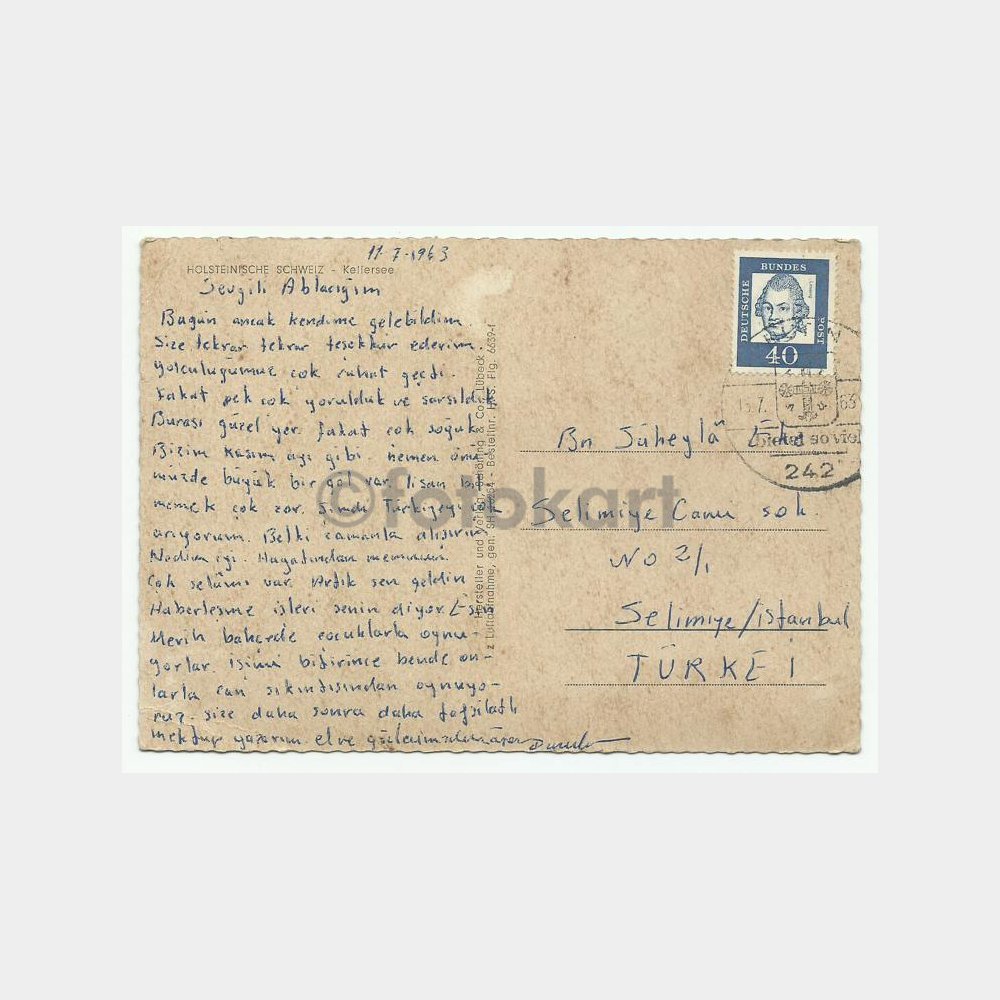 11-7-1963
HOLSTEINISCHE SCHWEIZ - Kellersee
Sevgili Ablacığım
Bugün ancak kendime gelebildim.
Size tekrar tekrar teşekkür ederim.
Yolculuğumuz çok rahat geçti.
Fakat pek çok yorulduk ve sarsıldık
Burası güzel yer fakat çok soğuk
Bizim kasım ayı gibi. hemen önü
müzde büyük bir göl var. lisan bil
memek çok zor. Şimdi Türkiyeyi çok
arıyorum. Belki zamanla alışırım
Nedim iyi. Hayatından memnun.
Çok selâmı var. Artık sen geldin
Haberleşme işleri senin diyor.
Merih bahçede çocuklarla oynu-
yorlar. işimi bitirince bende on-
larla can sıkıntısından oynuyo-
ruz. size daha sonra daha tafsilatlı
mektup yazarım. el ve gözlerinizden
Hersteller und Verlag, Schöning & Co., Lübeck
Luftaufnahme, gen. - Bestellnr.
©fotokart
DEUTSCHE
BUNDES
POST
40
63
242
Bn Süheylâ
Selimiye Camii sok.
NO 2/1
Selimiye/istanbul
TÜRKEİ